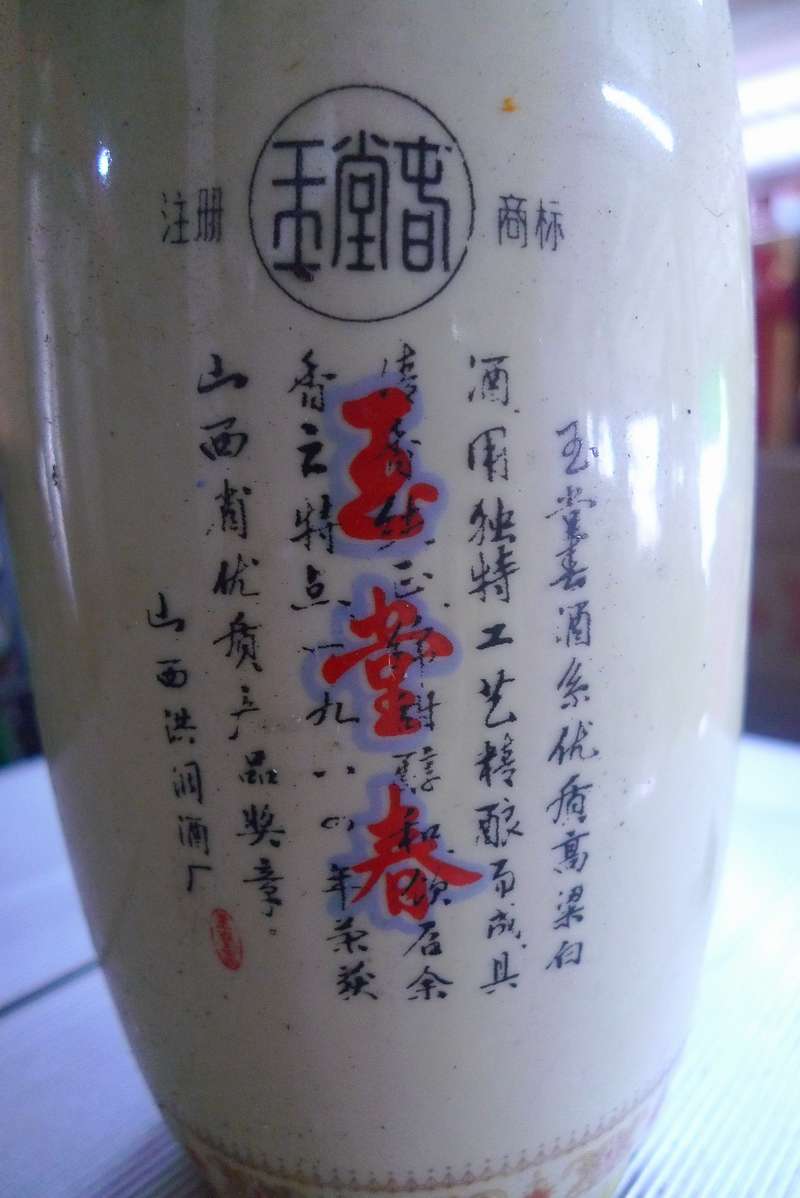 注册 玉堂春 商标
玉堂春
玉堂春酒系优质高粱白
酒用独特工艺精酿而成具
清香纯正 甜醇和 后余
香之特点一九八四年荣获
山西省优质产品奖章。
山西洪洞酒厂